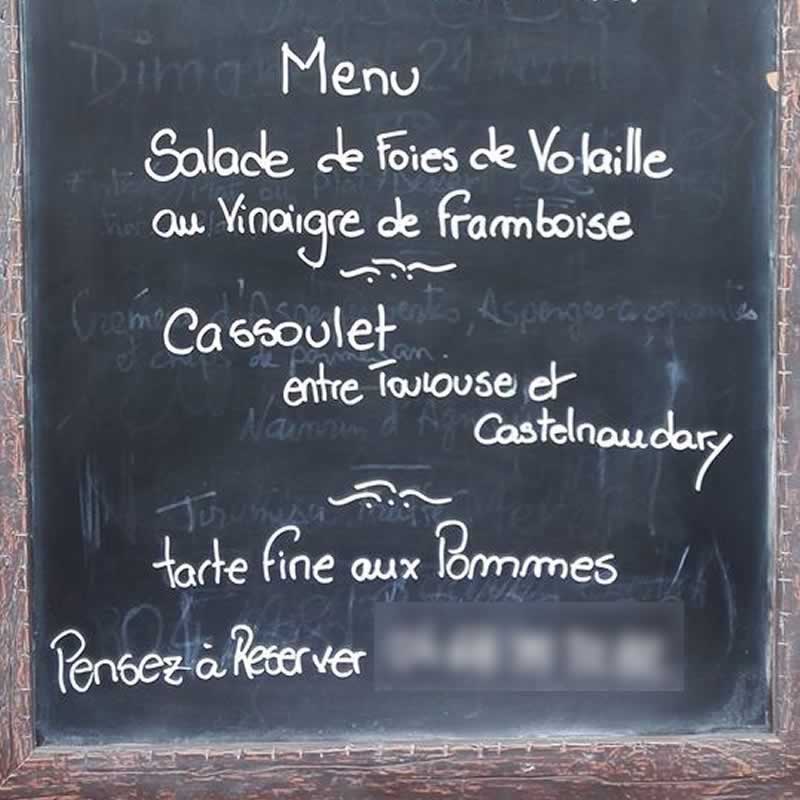 Menu
Salade de Foies de Volaille
au Vinaigre de framboise
Cassoulet
entre Toulouse et
Castelnaudary
tarte fine aux Pommes
Pensez à Réserver